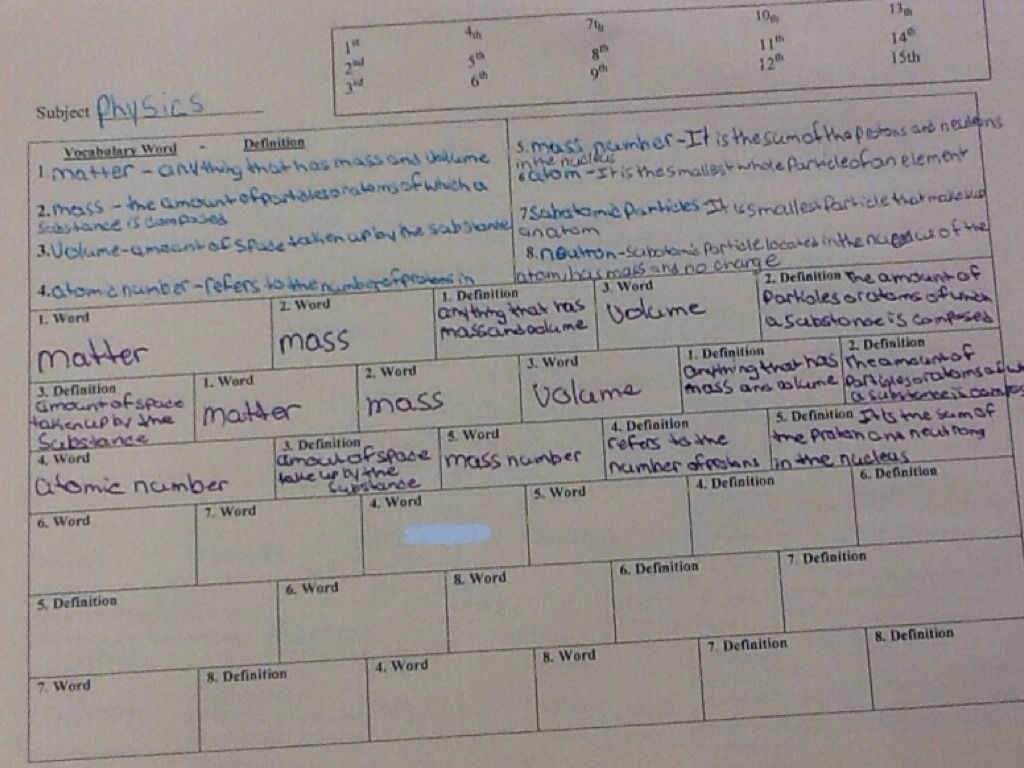 4th 7th 10th 13th
1st 5th 8th 11th 14th
2nd 6th 9th 12th 15th
3rd
Subject Physics
Vocabulary Word - Definition
1 matter - anything that has mass and volume
2. mass - the amount of particles or atoms of which a
substance is composed
3. Volume - amount of space taken up by the substance
4. atomic number - refers to the number of protons in
5. mass number - It is the sum of the protons and neutrons
in the nucleus
atom - It is the smallest whole particle of an element
7 Subatomic Particles It is smallest particle that makes up
an atom
8. neutron - subatomic particle locates in the nucleus of the
atom, has mass and no charge
1. Word
matter
2. Word
mass
1. Definition
anything that has
mass and volume
3. Word
Volume
2. Definition The amount of
Particles or atoms of which
a substance is composed
3. Definition
amount of space
taken up by the
Substance
1. Word
matter
2. Word
mass
3. Word
Volume
1. Definition
anything that has
mass and volume
2. Definition
The amount of
Particles or atoms of
a substance is
4. Word
atomic number
3. Definition
amout of space
take up by the
Substance
5. Word
mass number
4. Definition
refers to the
number of protons
5. Definition It is the sum of
the proton and neutrons
in the nucleus
6. Word
7. Word
4. Word
5. Word
4. Definition
6. Definition
5. Definition
6. Word
8. Word
6. Definition
7. Definition
7. Word
8. Definition
4. Word
8. Word
7. Definition
8. Definition